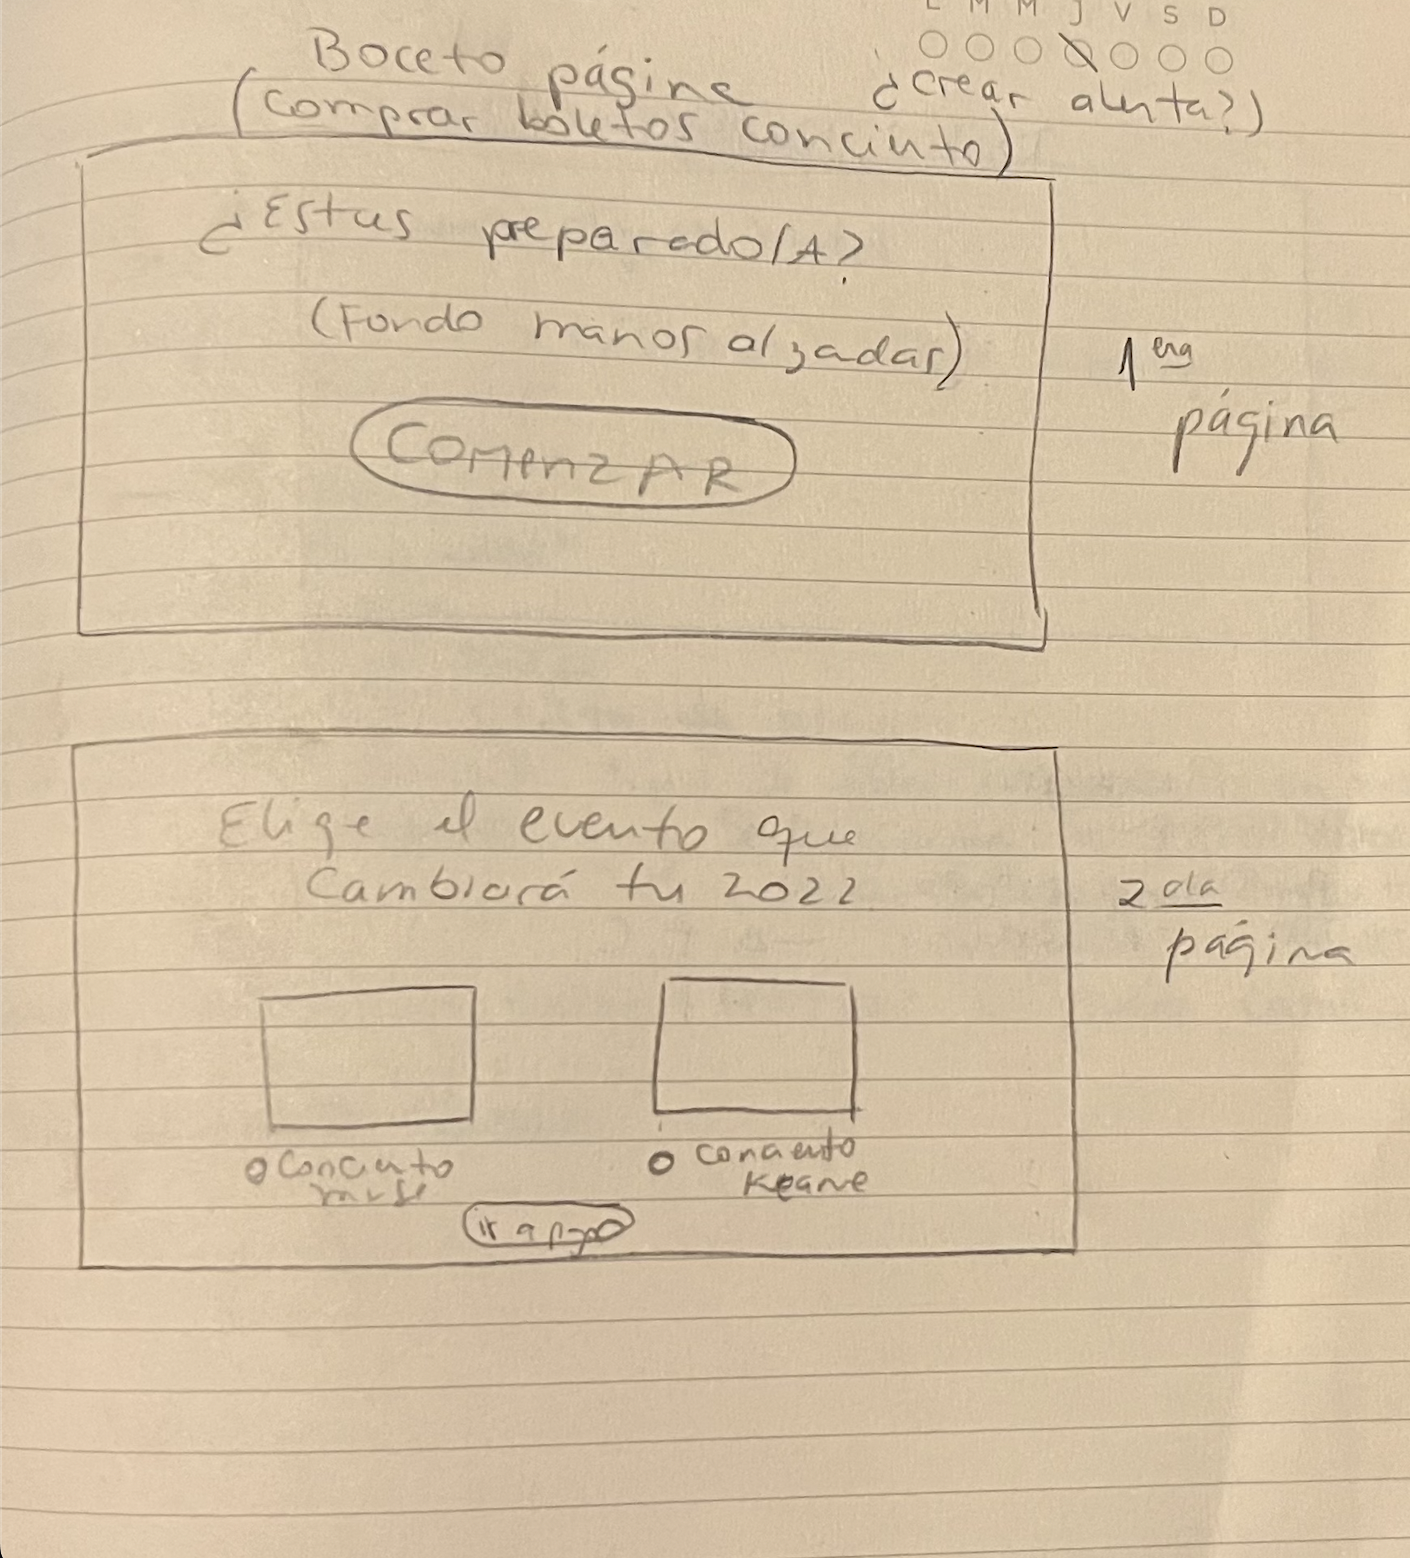 L M M J V S D
Boceto página
¿crear alerta?)
(comprar boletos concierto)
¿Estas preparado/A?
(Fondo manos alzadas)
COMENZAR
1era
página
Elige el evento que
Cambiará tu 2022
2da
página
Concierto
muse
Concierto
Keane
ir a pago